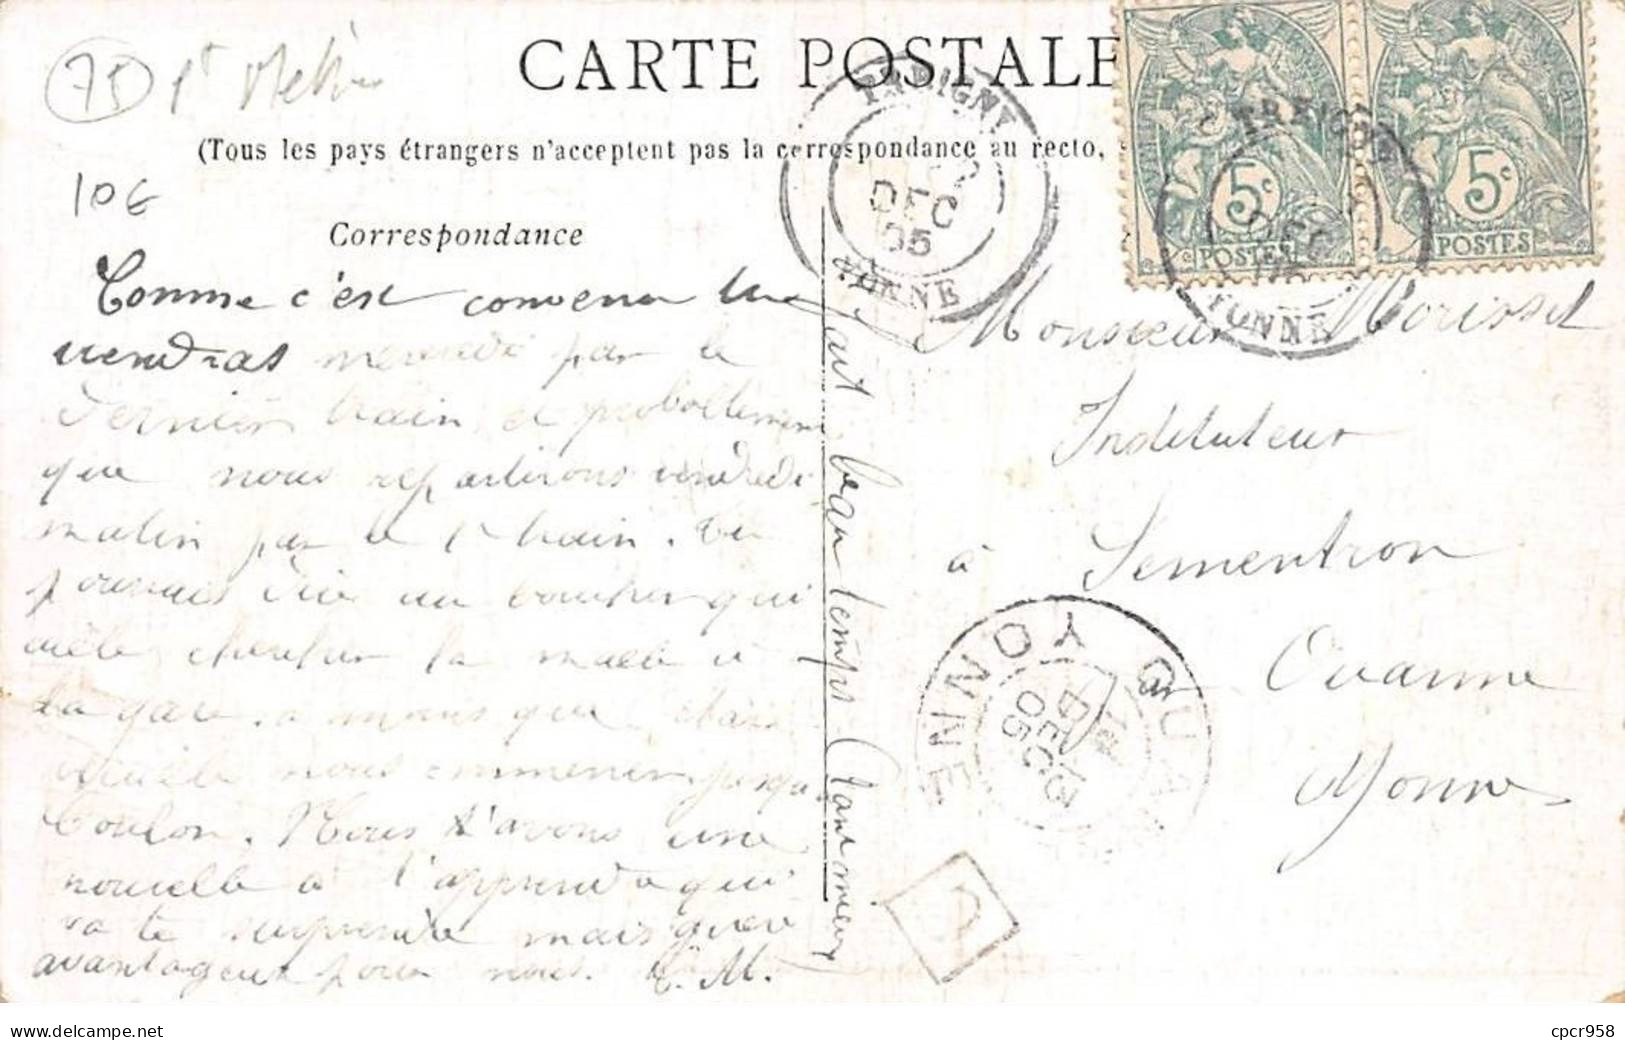 75 1er Métro
CARTE POSTALE
(Tous les pays étrangers n'acceptent pas la correspondance au recto,
10€
Correspondance
Comme c'est convenu tu
viendras mercredi par le
dernier train et probablement
que nous repartirons vendredi
matin par le 1er train. Tu
pourrais dire au boucher qui
aille chercher la malle à
la gare. à moins que
veuille nous emmener jusqu'à
Coulon. Nous t'avons une
nouvelle à t'apprendre qui
va te surprendre mais guère
avantageux pour nous. C. M.
Il fait beau temps. Tant mieux
Monsieur Morisset
Instituteur
à Sementron
par Ouanne
Yonne
PERIGNY
DEC
05
YONNE
5c
POSTES
5c
POSTES
YONNE
OUANNE
DEC
05
YONNE
cpcr958